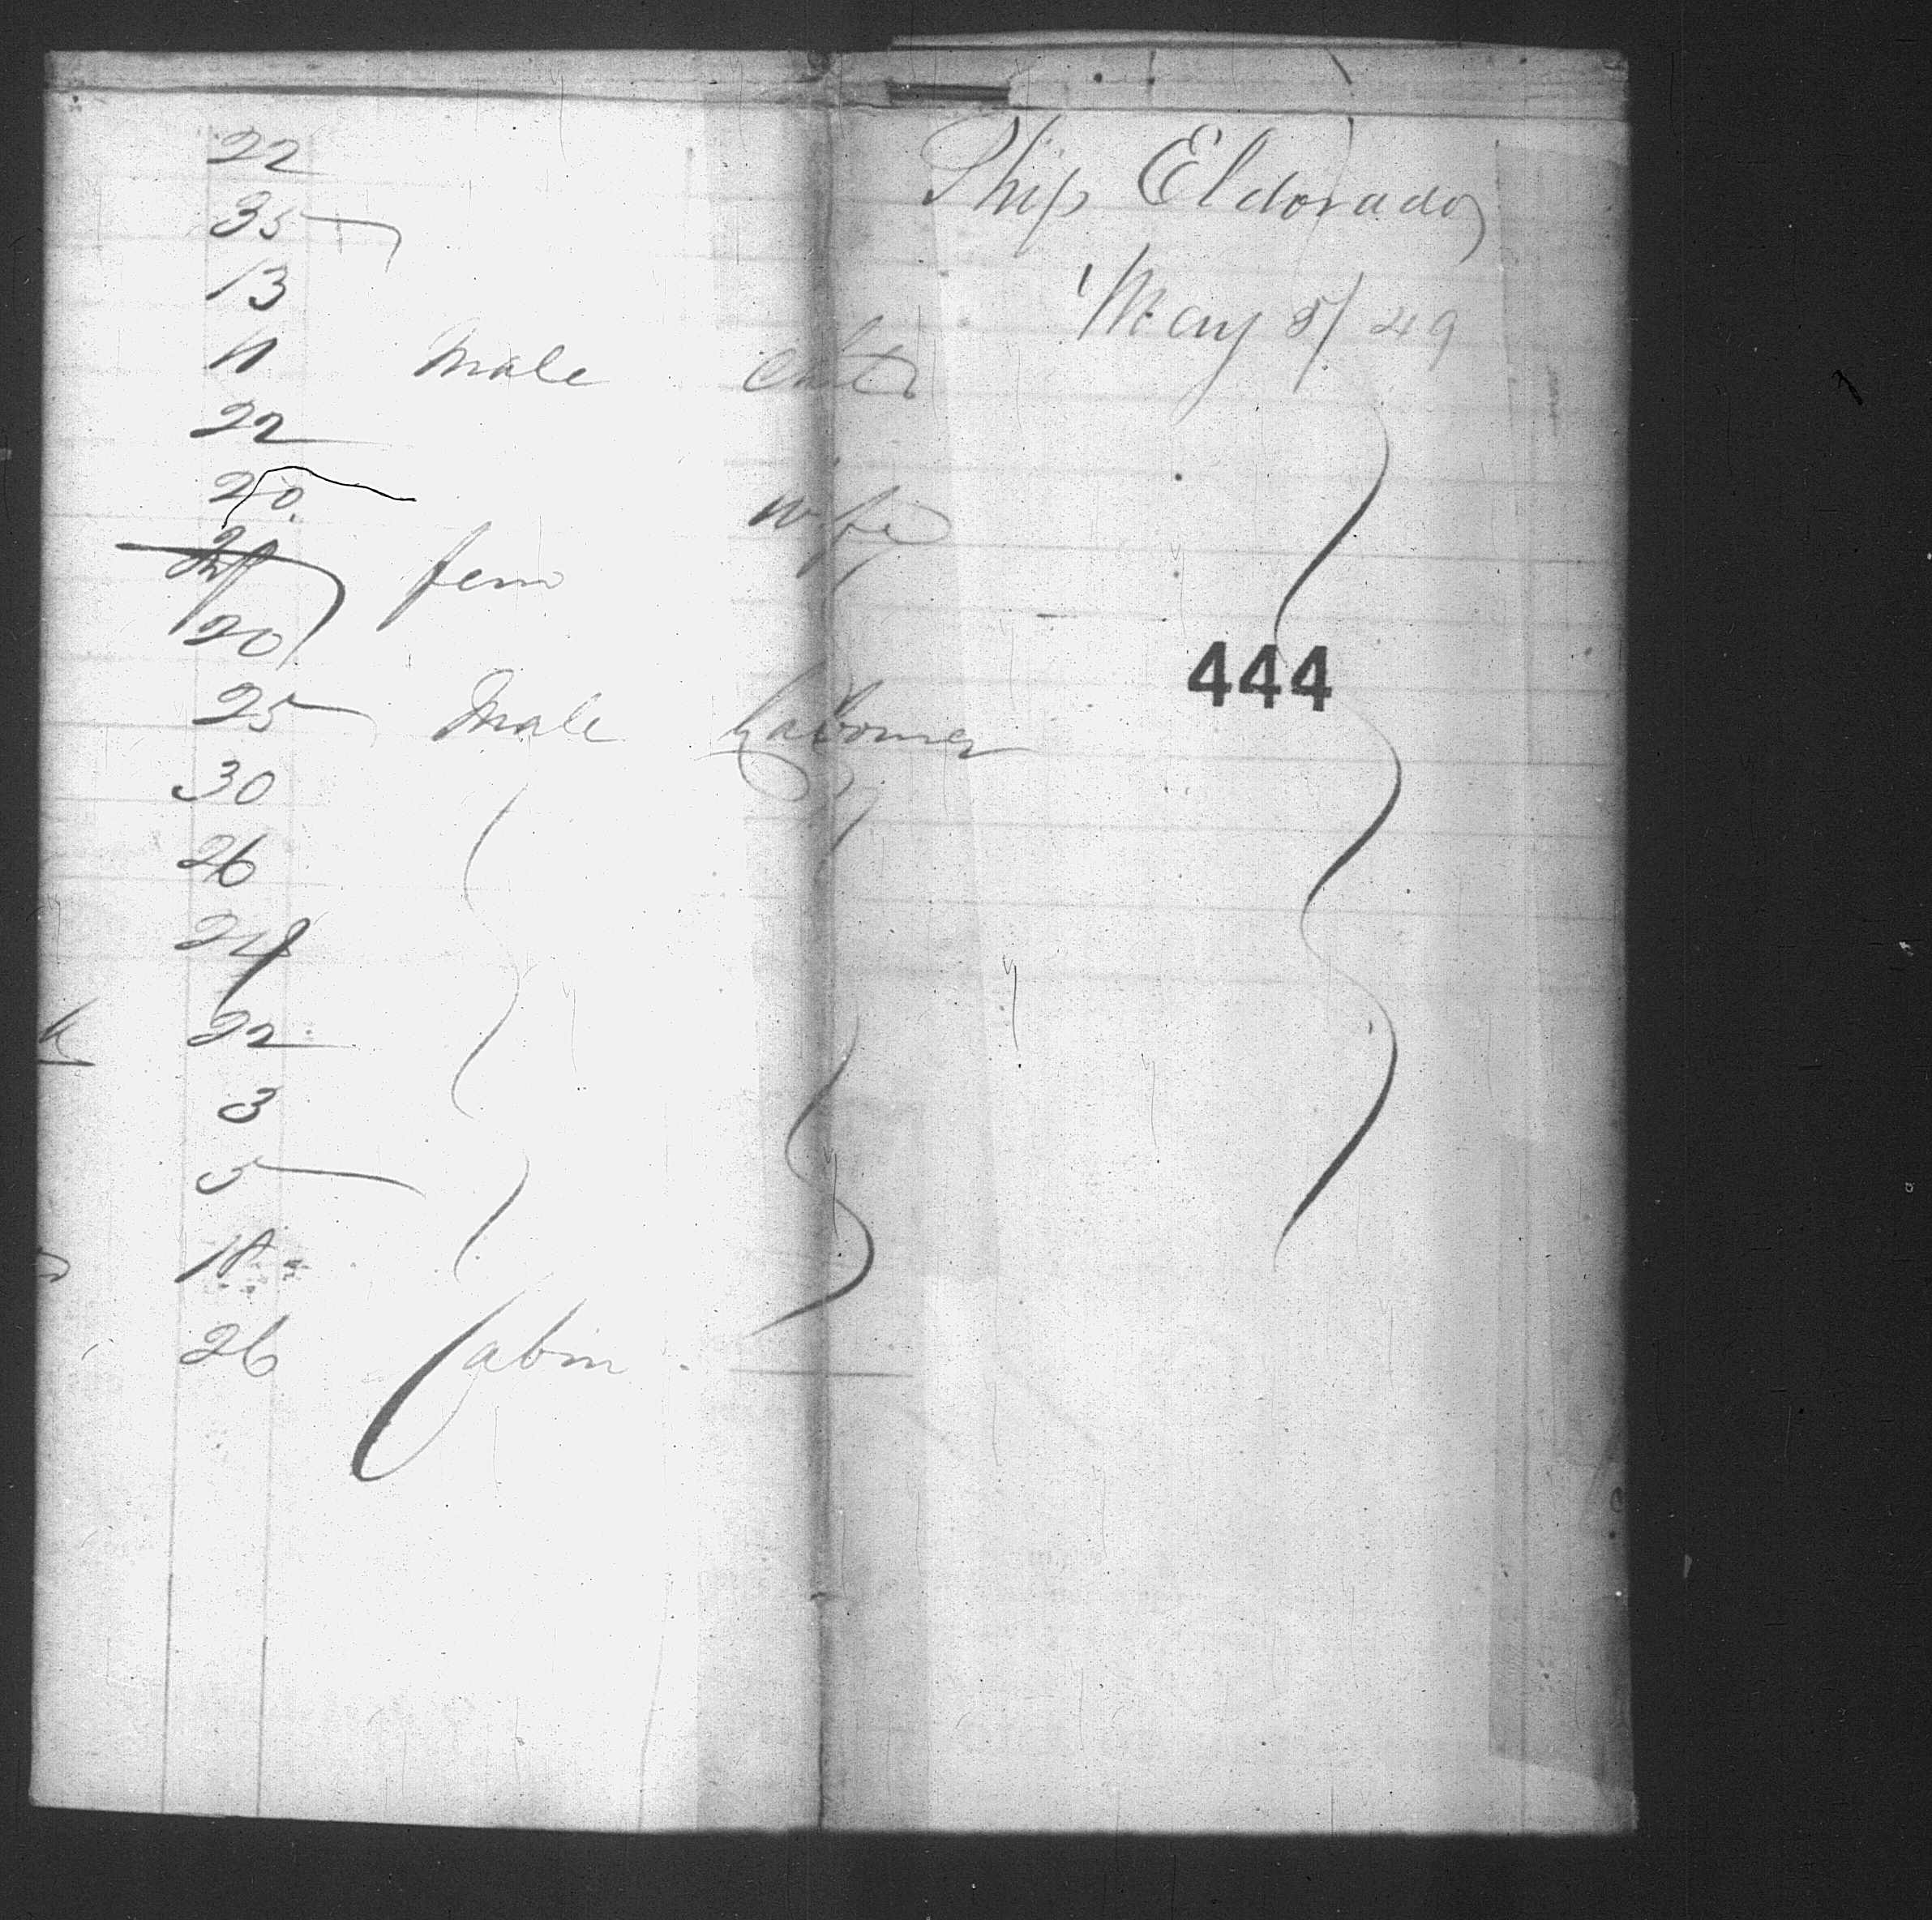 22
35
13
11 Male
22
20 wife
fem
20
25 Male Labourer
30
26
24
22
3
5
18
26 Cabin
Ship Eldorado
May 5/49
444